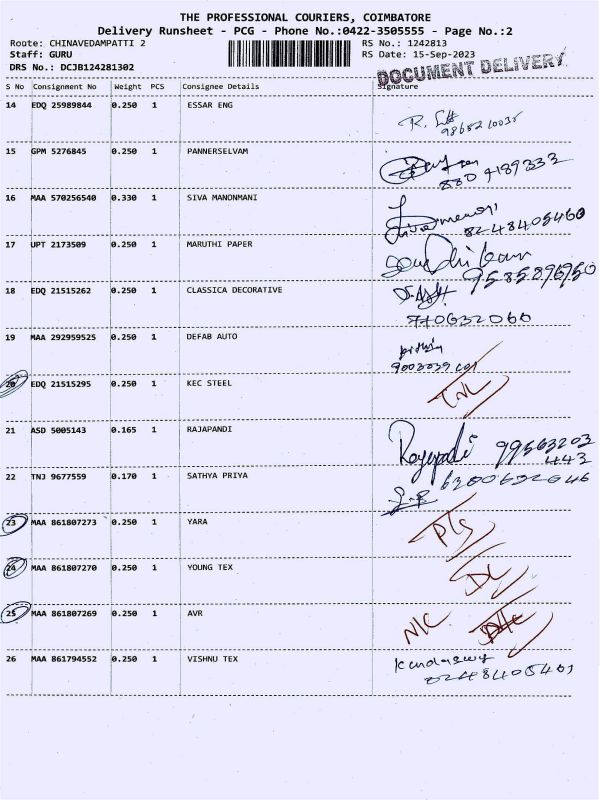 THE PROFESSIONAL COURIERS, COIMBATORE
Delivery Runsheet - PCG - Phone No.:0422-3505555 - Page No.:2
Route: CHINAVEDAMPATTI 2 RS No.: 1242813
Staff: GURU RS Date: 15-Sep-2023
DRS No.: DCJB124281302 DOCUMENT DELIVERY
S No Consignment No Weight PCS Consignee Details Signature
14 EDQ 25989844 0.250 1 ESSAR ENG
15 GPM 5276845 0.250 1 PANNERSELVAM
16 MAA 570256540 0.330 1 SIVA MANONMANI
8248405460
17 UPT 2173509 0.250 1 MARUTHI PAPER
9585896950
18 EDQ 21515262 0.250 1 CLASSICA DECORATIVE
19 MAA 292959525 0.250 1 DEFAB AUTO
20 EDQ 21515295 0.250 1 KEC STEEL
21 ASD 5005143 0.165 1 RAJAPANDI
99563203
443
22 TNJ 9677559 0.170 1 SATHYA PRIYA
23 MAA 861807273 0.250 1 YARA
24 MAA 861807270 0.250 1 YOUNG TEX
DL
25 MAA 861807269 0.250 1 AVR N/C
26 MAA 861794552 0.250 1 VISHNU TEX